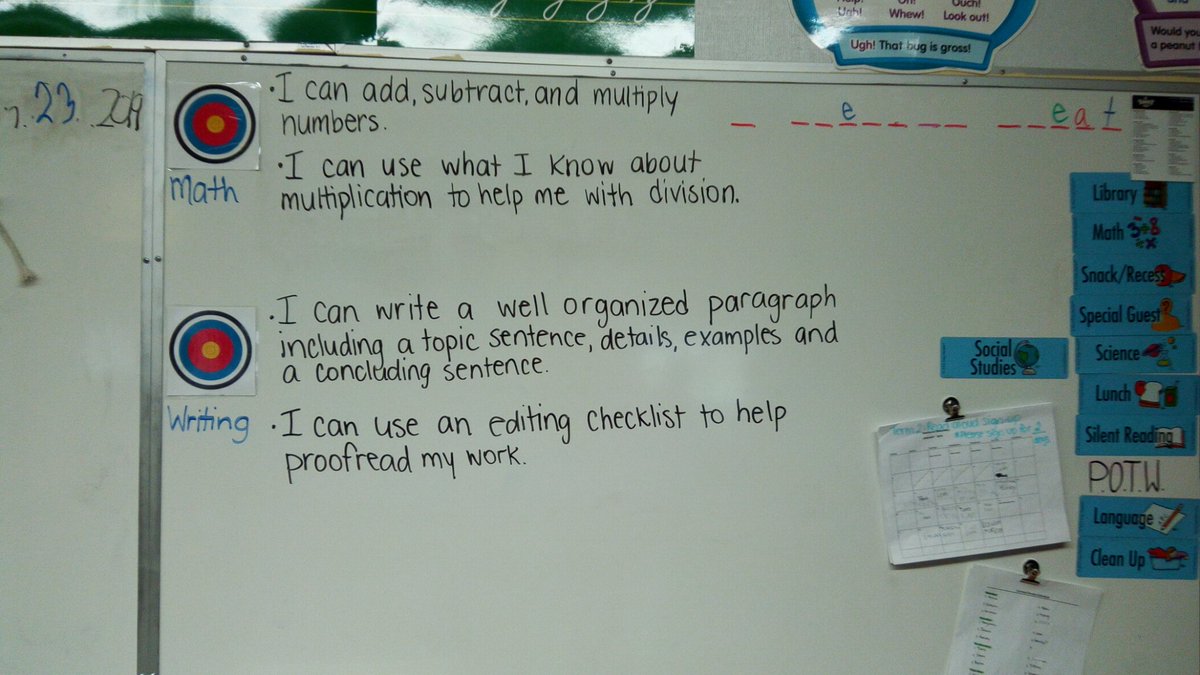 Ugh!
Whew!
Look out!
Ugh! That bug is gross!
Would you
a peanut
23 2019
• I can add, subtract, and multiply
numbers.
Math
• I can use what I know about
multiplication to help me with division.
_ _ _ e _ _ _ _ _ _ _ e a t
• I can write a well organized paragraph
including a topic sentence, details, examples and
a concluding sentence.
Writing
• I can use an editing checklist to help
proofread my work.
Library
Math
Snack/Recess
Special Guest
Social
Studies
Science
Lunch
Silent Reading
P.O.T.W.
Language
Clean Up